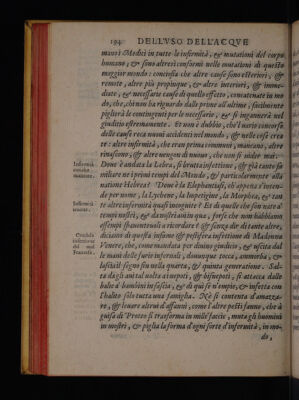 194 DELL'VSO DELL'ACQVE
mani i Medici in tutte le infermità, & mutationi del corpo
humano; & sono altresì conformi nelle mutationi di questo
maggior mondo: conciosia che altre cause sono esteriori, &
remote, altre più propinque, & altre interiori, & imme-
diate, & necessarie cause di quello effetto, concatenate in mo-
do, che, chi non ha riguardo dalle prime all'ultime, facilmente
piglierà le contingenti per le necessarie, & si ingannerà nel
giuditio estremamente. Et non è dubbio, che'l vario concorso
delle cause reca nuoui accidenti nel mondo, & nelle cose crea
te: altre infirmità, che eran prima communi, mancano, altre
rinascono, & altre uengon di nuouo, che non si andar mai.
Dou'è andata la Lebra, sì brutta infettione, & già tanto fa
miliare ne i primi tempi del Mondo, & particolarmente alla
natione Hebrea? Dou'è la Elephantiasi, ch'apena s'inten-
de per nome, la Lychene, la Impetigine, la Morphea, & tan
te altre infirmità quasi incognite? Et di quelle che son nate a'
tempi nostri, & da nostri auni in qua, forse che non habbiamo
essempi spauentosi a ricordare? & senza dir di tante altre,
diciamo di questa insame & pestifera infettione di Madonna
Venere, che, come mandata per diuino giudicio, & uscita dal
le mani delle furie infernali, dounque tocca, ammorba, &
lascia il segno fin nella quarta, & quinta generatione. Sal-
ta dagli aui tal uolta a i nepoti, & bisnepoti, si attacca dalle
balie a' bambini in fascia, & di quì se n'empie, & infetta con
l'halito solo tutta una famiglia. Nè si contenta d'amazza-
re, & leuare altrui d'affanni, come l'altre pesti fanno, che à
guisa di Proteo si trasforma in mille faccie, muta gli huomini
in mostri, & piglia la forma d'ogni sorte d'infermità, in mo-
do,
Infermità
antiche
mancate.
Infermità
nuoue.
Crudele
infettione
del mal
Francese.